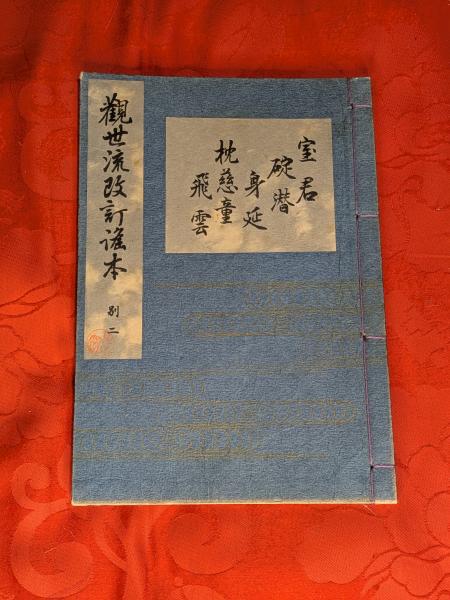 觀世流改訂謠本
別二
室君
碇潜
身延
枕慈童
飛雲